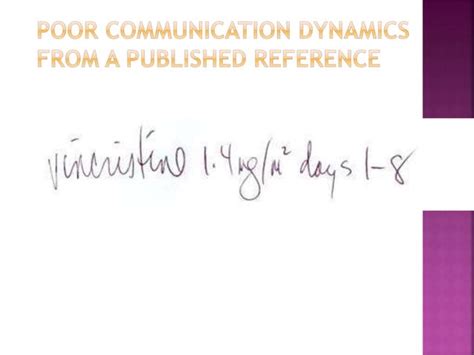 POOR COMMUNICATION DYNAMICS
FROM A PUBLISHED REFERENCE
vincristine 1.4mg/m² days 1-8